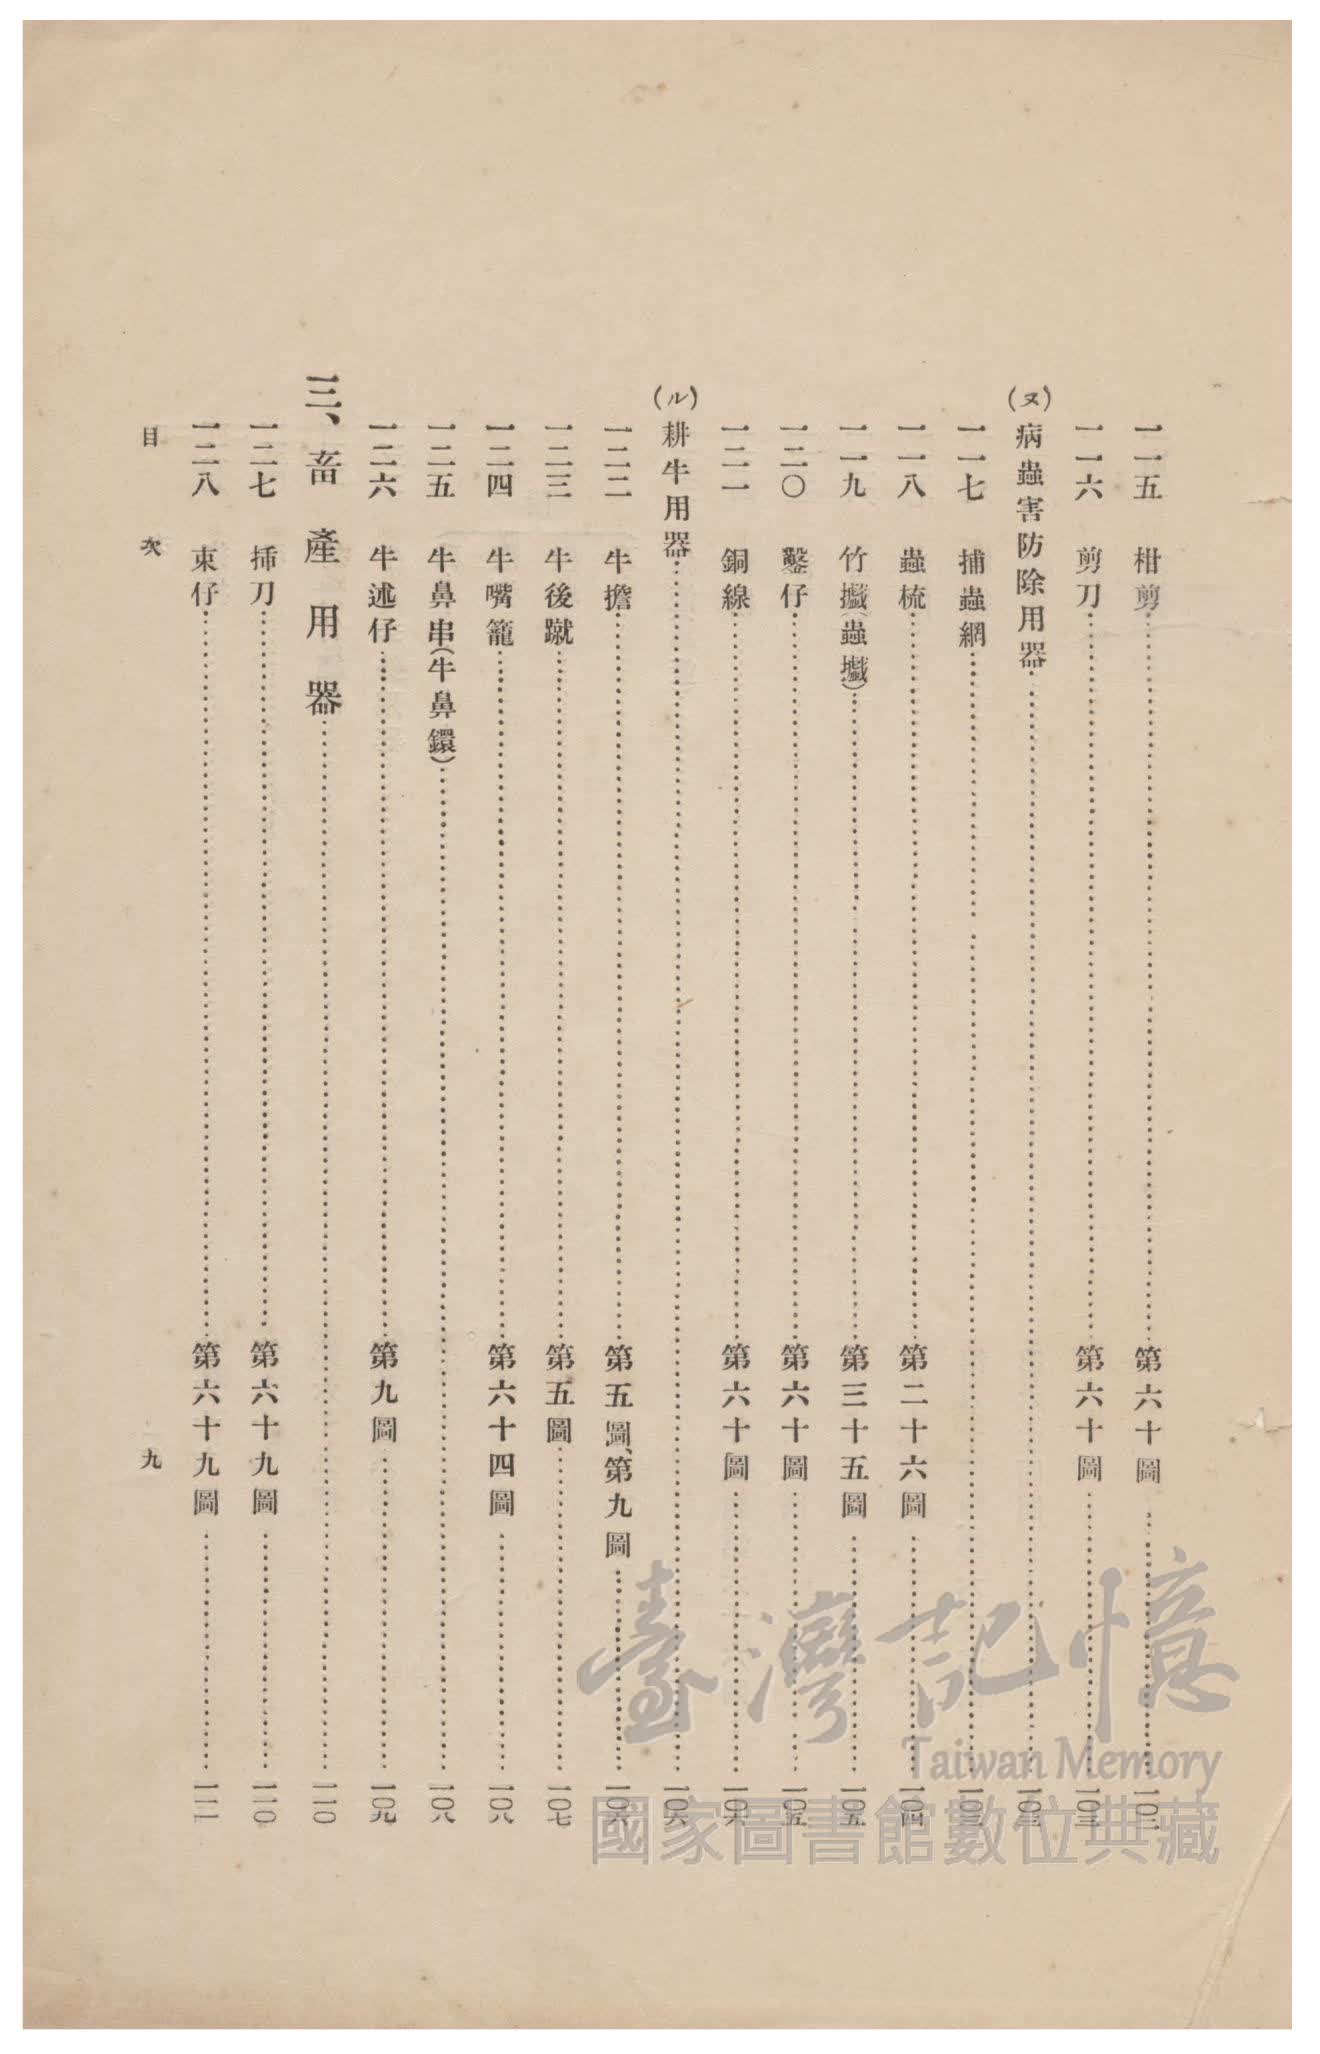 一一五 柑剪……第六十圖……一〇二
一一六 剪刀……第六十圖……一〇三
(ヌ)病蟲害防除用器……一〇三
一一七 捕蟲網……一〇三
一一八 蟲梳……第二十六圖……一〇四
一一九 竹(蟲)……第三十五圖……一〇五
一二〇 鑿仔……第六十圖……一〇五
一二一 銅線……第六十圖……一〇六
(ル)耕牛用器……一〇六
一二二 牛擔……第五圖、第九圖……一〇六
一二三 牛後蹴……第五圖……一〇七
一二四 牛嘴籠……第六十四圖……一〇八
一二五 牛鼻串(牛鼻鐶)……一〇八
一二六 牛述仔……第九圖……一〇九
三、畜產用器……一一〇
一二七 揷刀……第六十九圖……一一〇
一二八 束仔……第六十九圖……一一一
目次 九
臺灣記憶
Taiwan Memory
國家圖書館數位典藏